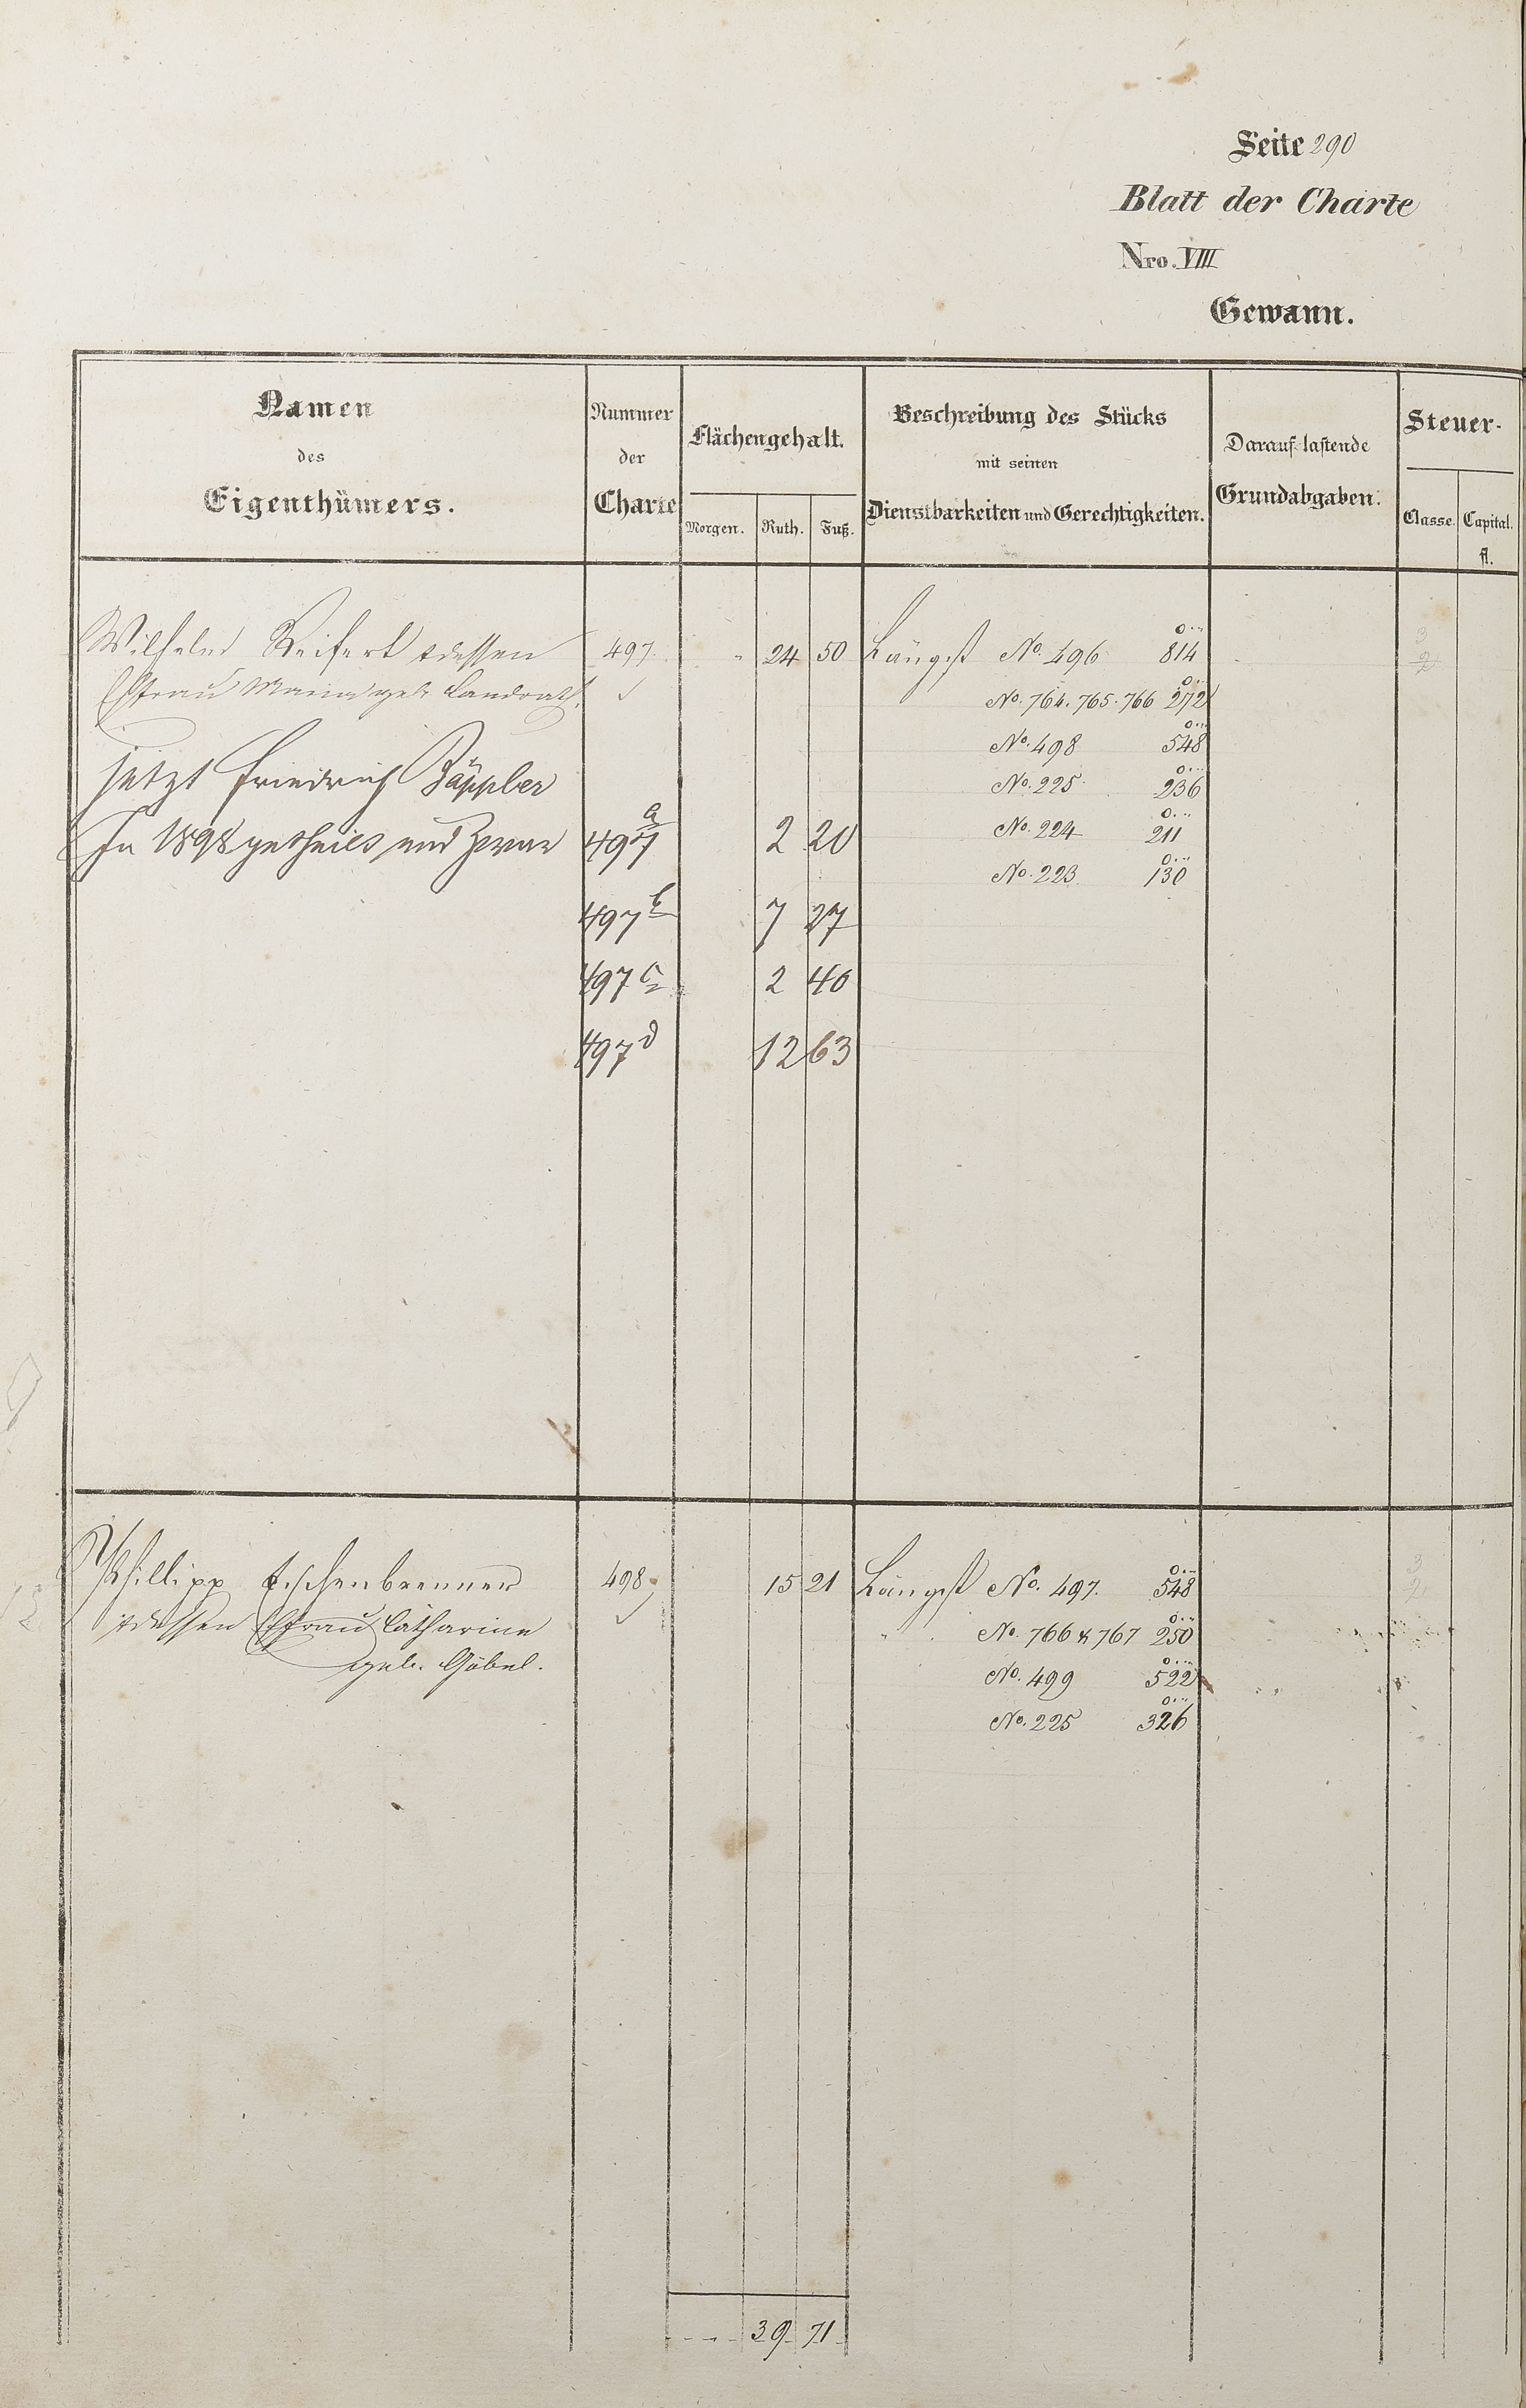 Seite 290
Blatt der Charte
Nro. VIII
Gewann.
Namen des Eigenthümers.
Nummer der Charte
Flächengehalt.
Morgen. Ruth. Fuß.
Beschreibung des Stücks mit seinen Dienstbarkeiten und Gerechtigkeiten.
Darauf lastende Grundabgaben.
Steuer-
Classe. Capital.
fl.
Wilhelm Seifert & dessen 497. " 24 50 Längst No. 496 814
Ehfrau Maria geb. Landrath. No. 764. 765. 766 272
No. 498 548
jetzt Friedrich Zäppler No. 225 236
In 1898 getheilt und zwar 497 a 2 20 No. 224 211
No. 223 130
497 b 7 27
497 c 2 40
497 d 12 63
Phillipp Eschenbrenner 498. 15 21 Längst No. 497. 548
& dessen Ehfrau Catharine " No. 766 & 767 250
geb. Göbel. No. 499 522
No. 225 326
39 71